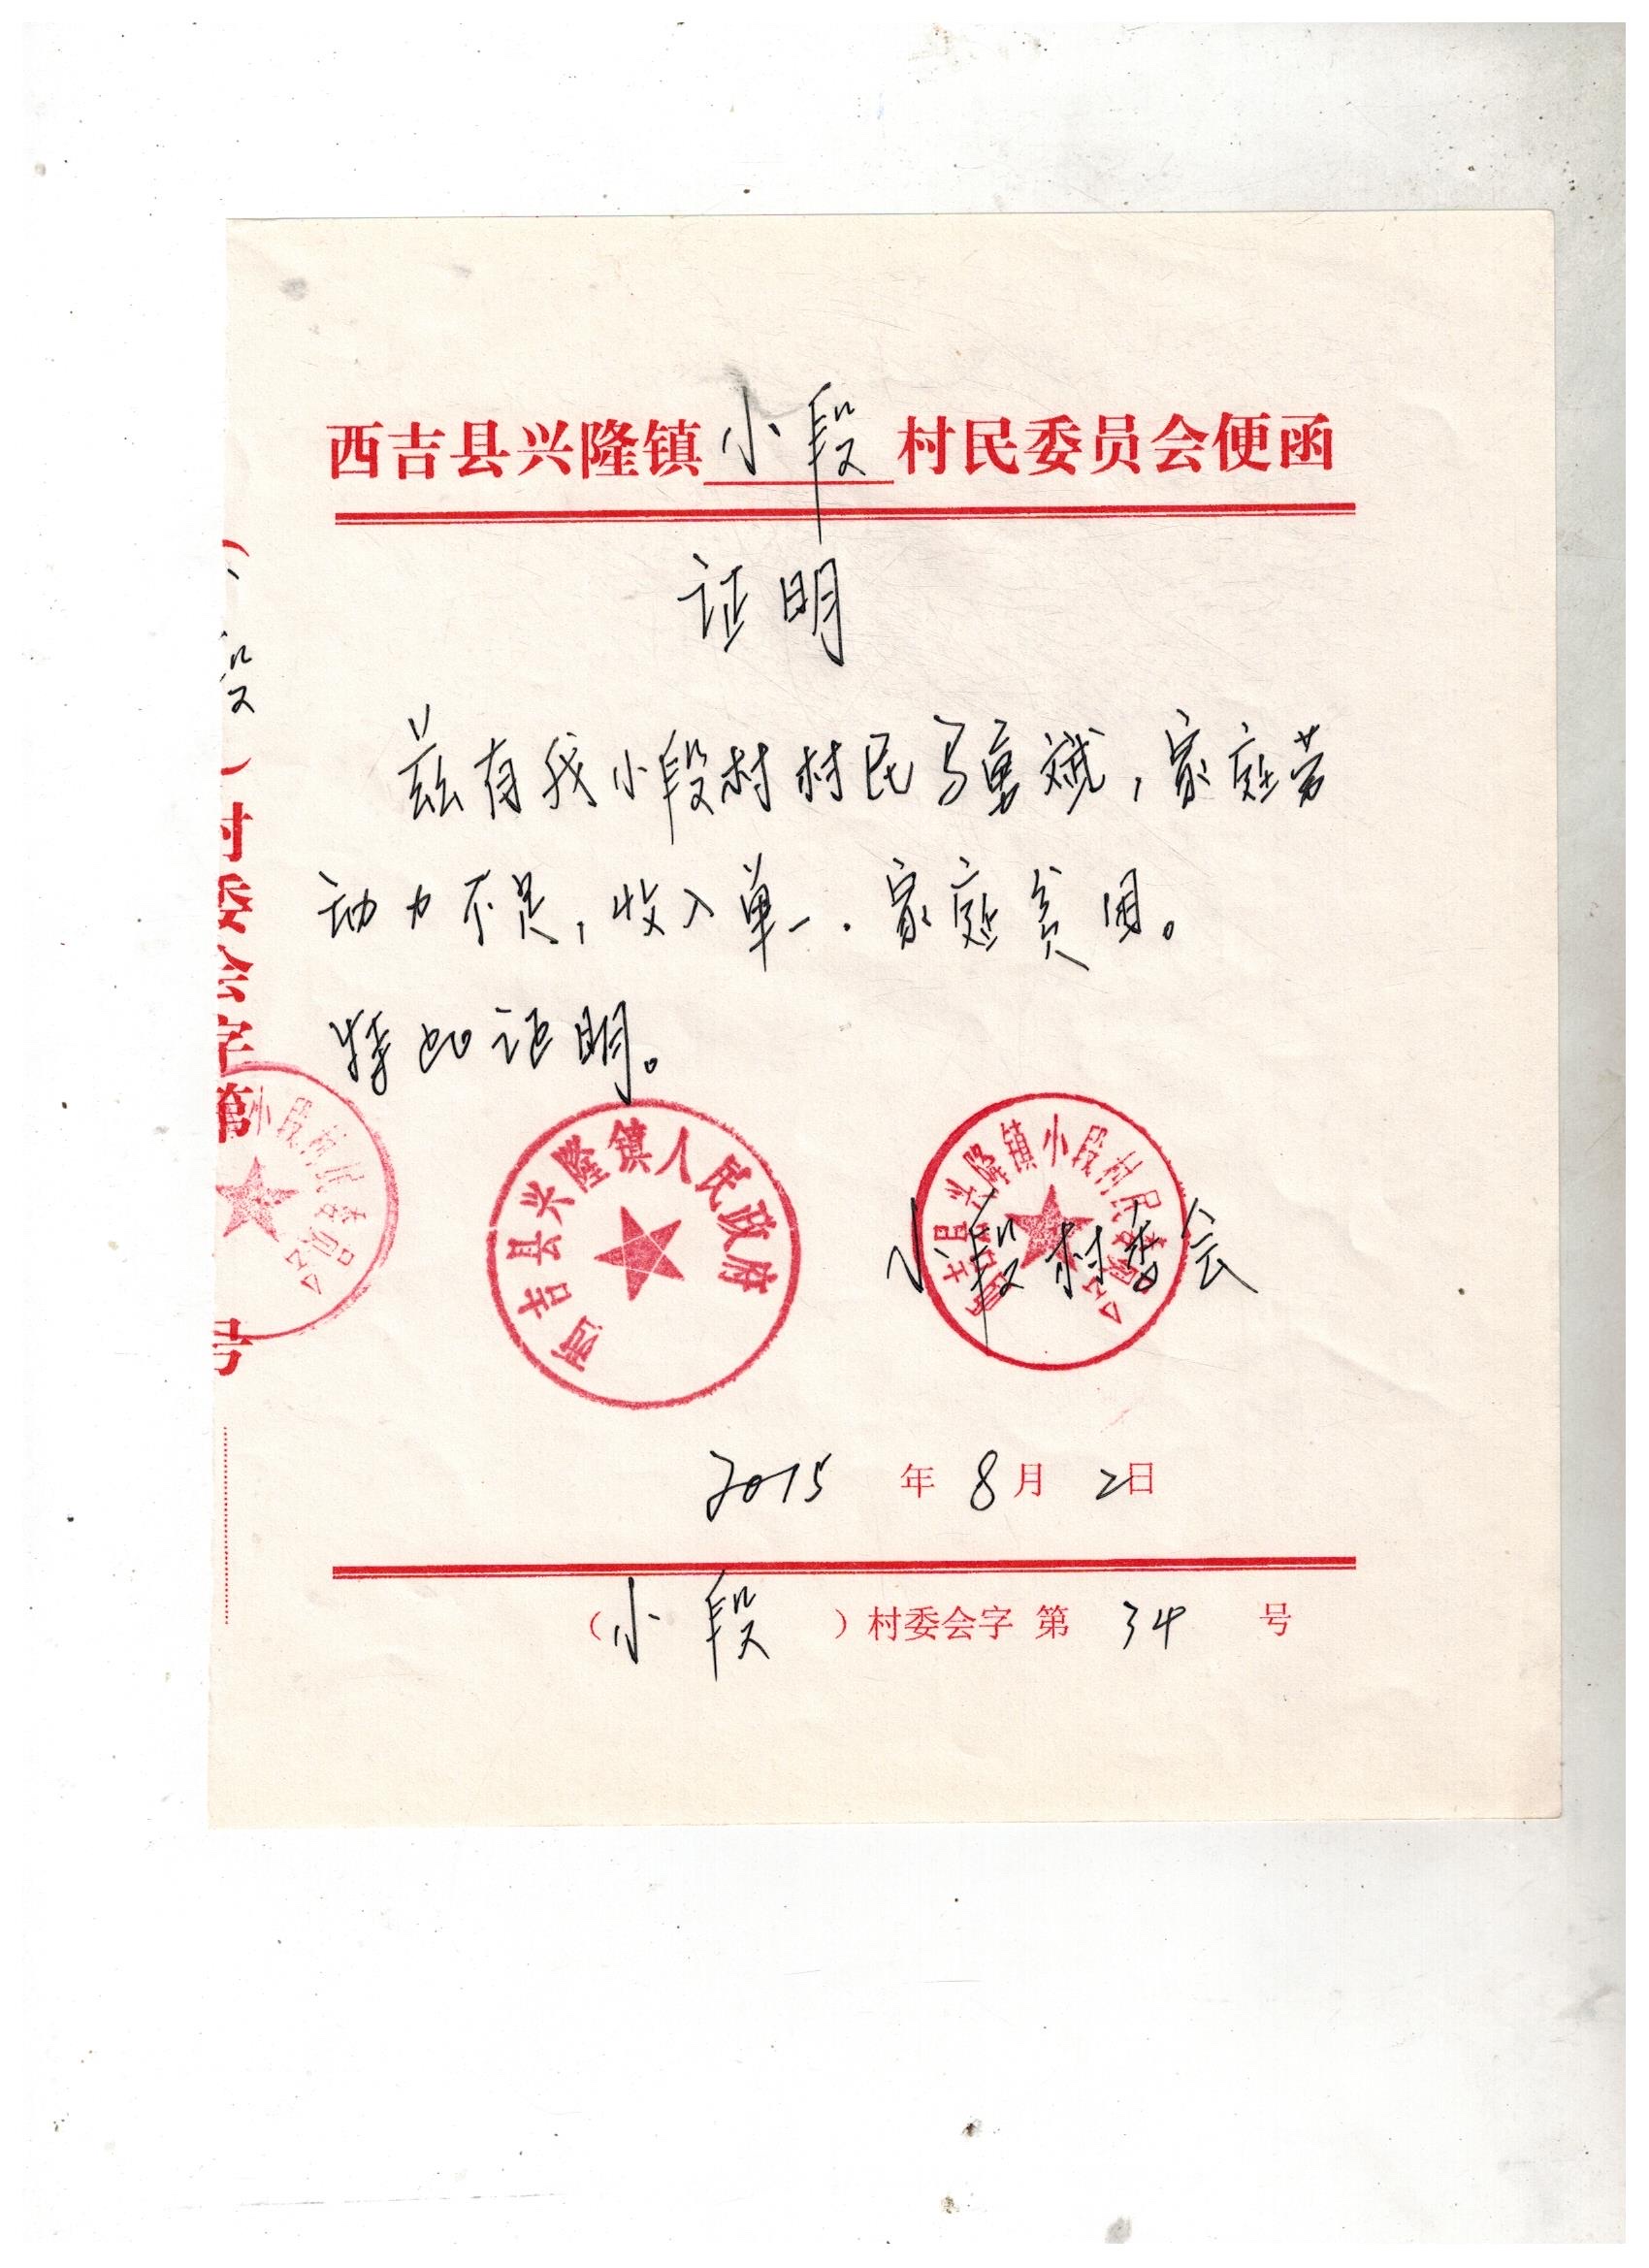 西吉县兴隆镇小段村民委员会便函
证明
兹有我小段村村民马勇斌，家庭劳
动力不足，收入单一．家庭贫困。
特此证明。
西吉县兴隆镇人民政府
西吉县兴隆镇小段村民委员会
小段村委会
2015年8月2日
（小段）村委会字 第 34 号
段）村委会字第 号
小段村民委员会